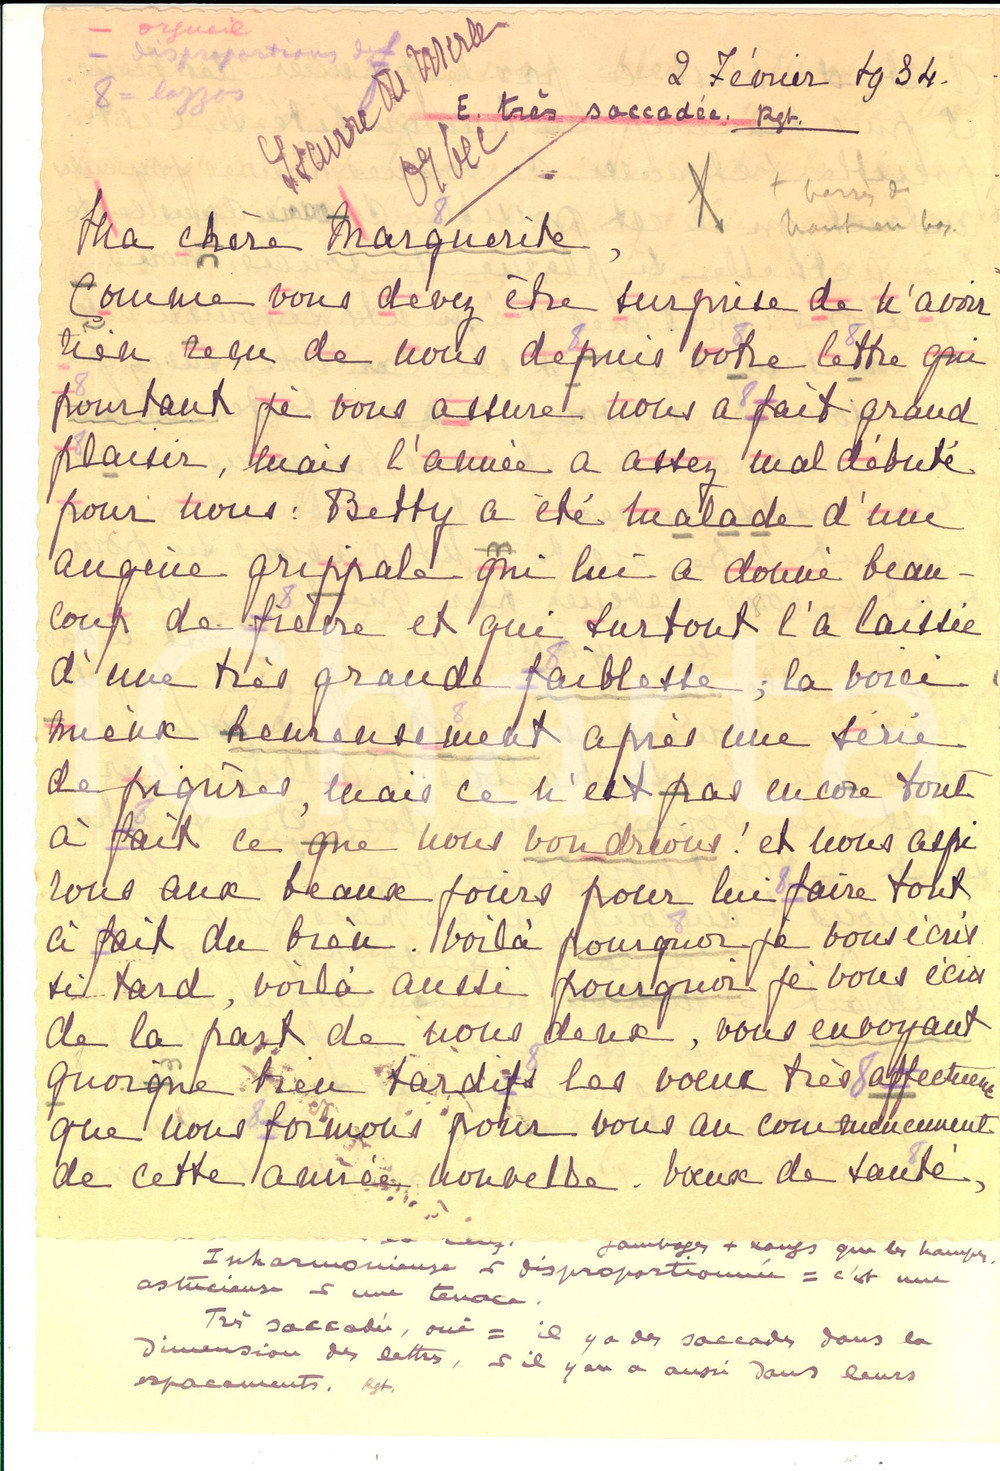 — orgueil
— disproportions
8 = lassos
2 Février 1934.
E. très saccadée. Rgt.
+ barres de
haut en bas.
Ma chère Marguerite,
Comme vous devez être surprise de n'avoir
rien reçu de nous depuis votre lettre qui
pourtant je vous assure nous a fait grand
plaisir, mais l'année a assez mal débuté
pour nous : Betty a été malade d'une
angine grippale qui lui a donné beau-
coup de fièvre et qui surtout l'a laissée
d'une très grande faiblesse ; la voici
mieux heureusement après une série
de piqûres, mais ce n'est pas encore tout
à fait ce que nous voudrions ! et nous aspi
rons aux beaux jours pour lui faire tout
à fait du bien. Voilà pourquoi je vous écris
si tard, voilà aussi pourquoi je vous écris
de la part de nous deux, vous envoyant
quoique bien tardifs les vœux très affectueux
que nous formons pour vous au commencement
de cette année nouvelle. Vœux de santé,
jambages + longs que les hampes.
Inharmonieuse et disproportionnée = c'est une
astucieuse et une tenace.
Très saccadée, oui = il y a des saccades dans la
dimension des lettres, et il y en a aussi dans leurs
espacements. Rgt.